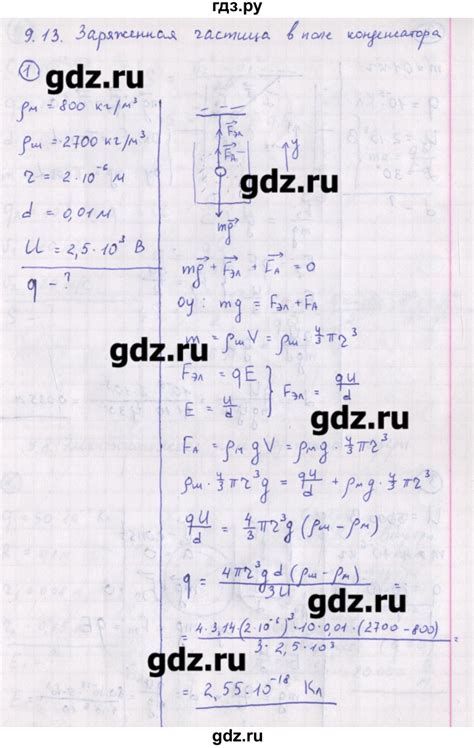 гдз.ру
9.13. Заряженная частица в поле конденсатора
1
gdz.ru
ρм = 800 кг/м³
ρш = 2700 кг/м³
r = 2·10⁻⁶ м
d = 0,01 м
U = 2,5·10³ В
q - ?
F⃗эл
F⃗А
y
mg⃗
gdz.ru
mg⃗ + F⃗эл + F⃗А = 0
oy: mg = Fэл + FА
m = ρшV = ρш · 4/3 πr³
gdz.ru
Fэл = qE
E = U/d
} Fэл = qU/d
gdz.ru
FА = ρм gV = ρмg · 4/3 πr³
ρш · 4/3 πr³g = qU/d + ρмg · 4/3 πr³
gdz.ru
qU/d = 4/3 πr³g (ρш - ρм)
q = 4πr³gd (ρш - ρм) / 3U =
gdz.ru
= 4·3,14(2·10⁻⁶)³·10·0,01·(2700-800) / 3·2,5·10³ =
gdz.ru
= 2,55·10⁻¹⁸ Кл
gdz.ru
гдз.ру